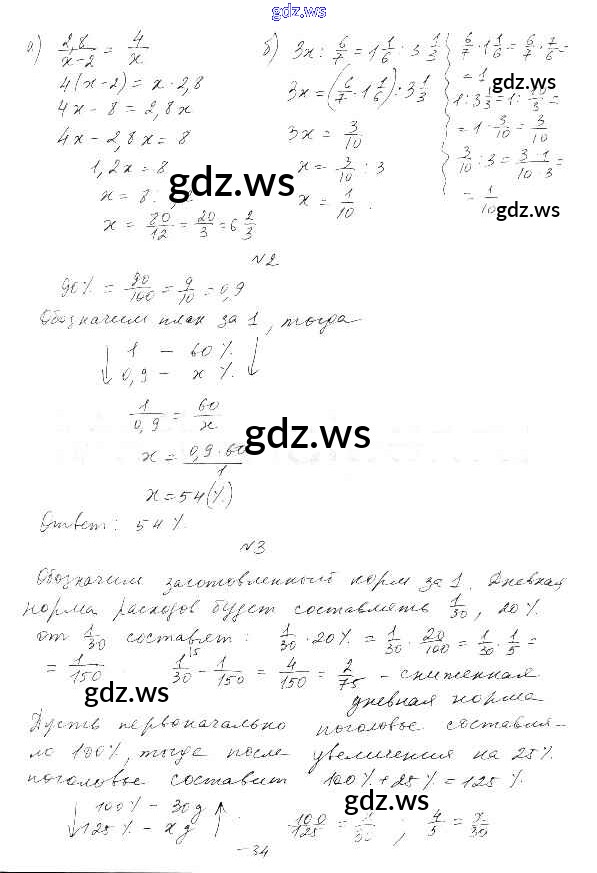 gdz.ws
а) 2,8/(x-2) = 4/x
4(x-2) = x · 2,8
4x - 8 = 2,8x
4x - 2,8x = 8
1,2x = 8
x = 8 :
x = 80/12 = 20/3 = 6 2/3
б) 3x : 6/7 = 1 1/6 : 3 1/3
3x = (6/7 · 1 1/6) : 3 1/3
3x = 3/10
x = 3/10 : 3
x = 1/10.
6/7 · 1 1/6 = 6/7 · 7/6 =
= 1
1 : 3 1/3 = 1 : 10/3 =
= 1 · 3/10 = 3/10
3/10 : 3 = (3·1)/(10·3) =
= 1/10
gdz.ws
gdz.ws
gdz.ws
gdz.ws
№2
90% = 90/100 = 9/10 = 0,9
Обозначим план за 1, тогда
↓ 1 – 60% ↓
0,9 – x %
1/0,9 = 60/x
x = (0,9 · 60)/1
x = 54 (%)
gdz.ws
Ответ: 54 %.
№3
Обозначим заготовленный корм за 1. Дневная
норма расходов будет составлять 1/30, 20%
от 1/30 составят: 1/30 · 20% = 1/30 · 20/100 = 1/30 · 1/5 =
= 1/150. 1/30 - 1/150 = 4/150 = 2/75 – сниженная
дневная норма
gdz.ws
gdz.ws
Пусть первоначально поголовье составля-
ло 100%, тогда после увеличения на 25%
поголовье составит 100% + 25% = 125 %.
↓ 100% – 30 д ↑
125% – x д
100/125 = x/30 ; 4/5 = x/30
gdz.ws
gdz.ws
-34